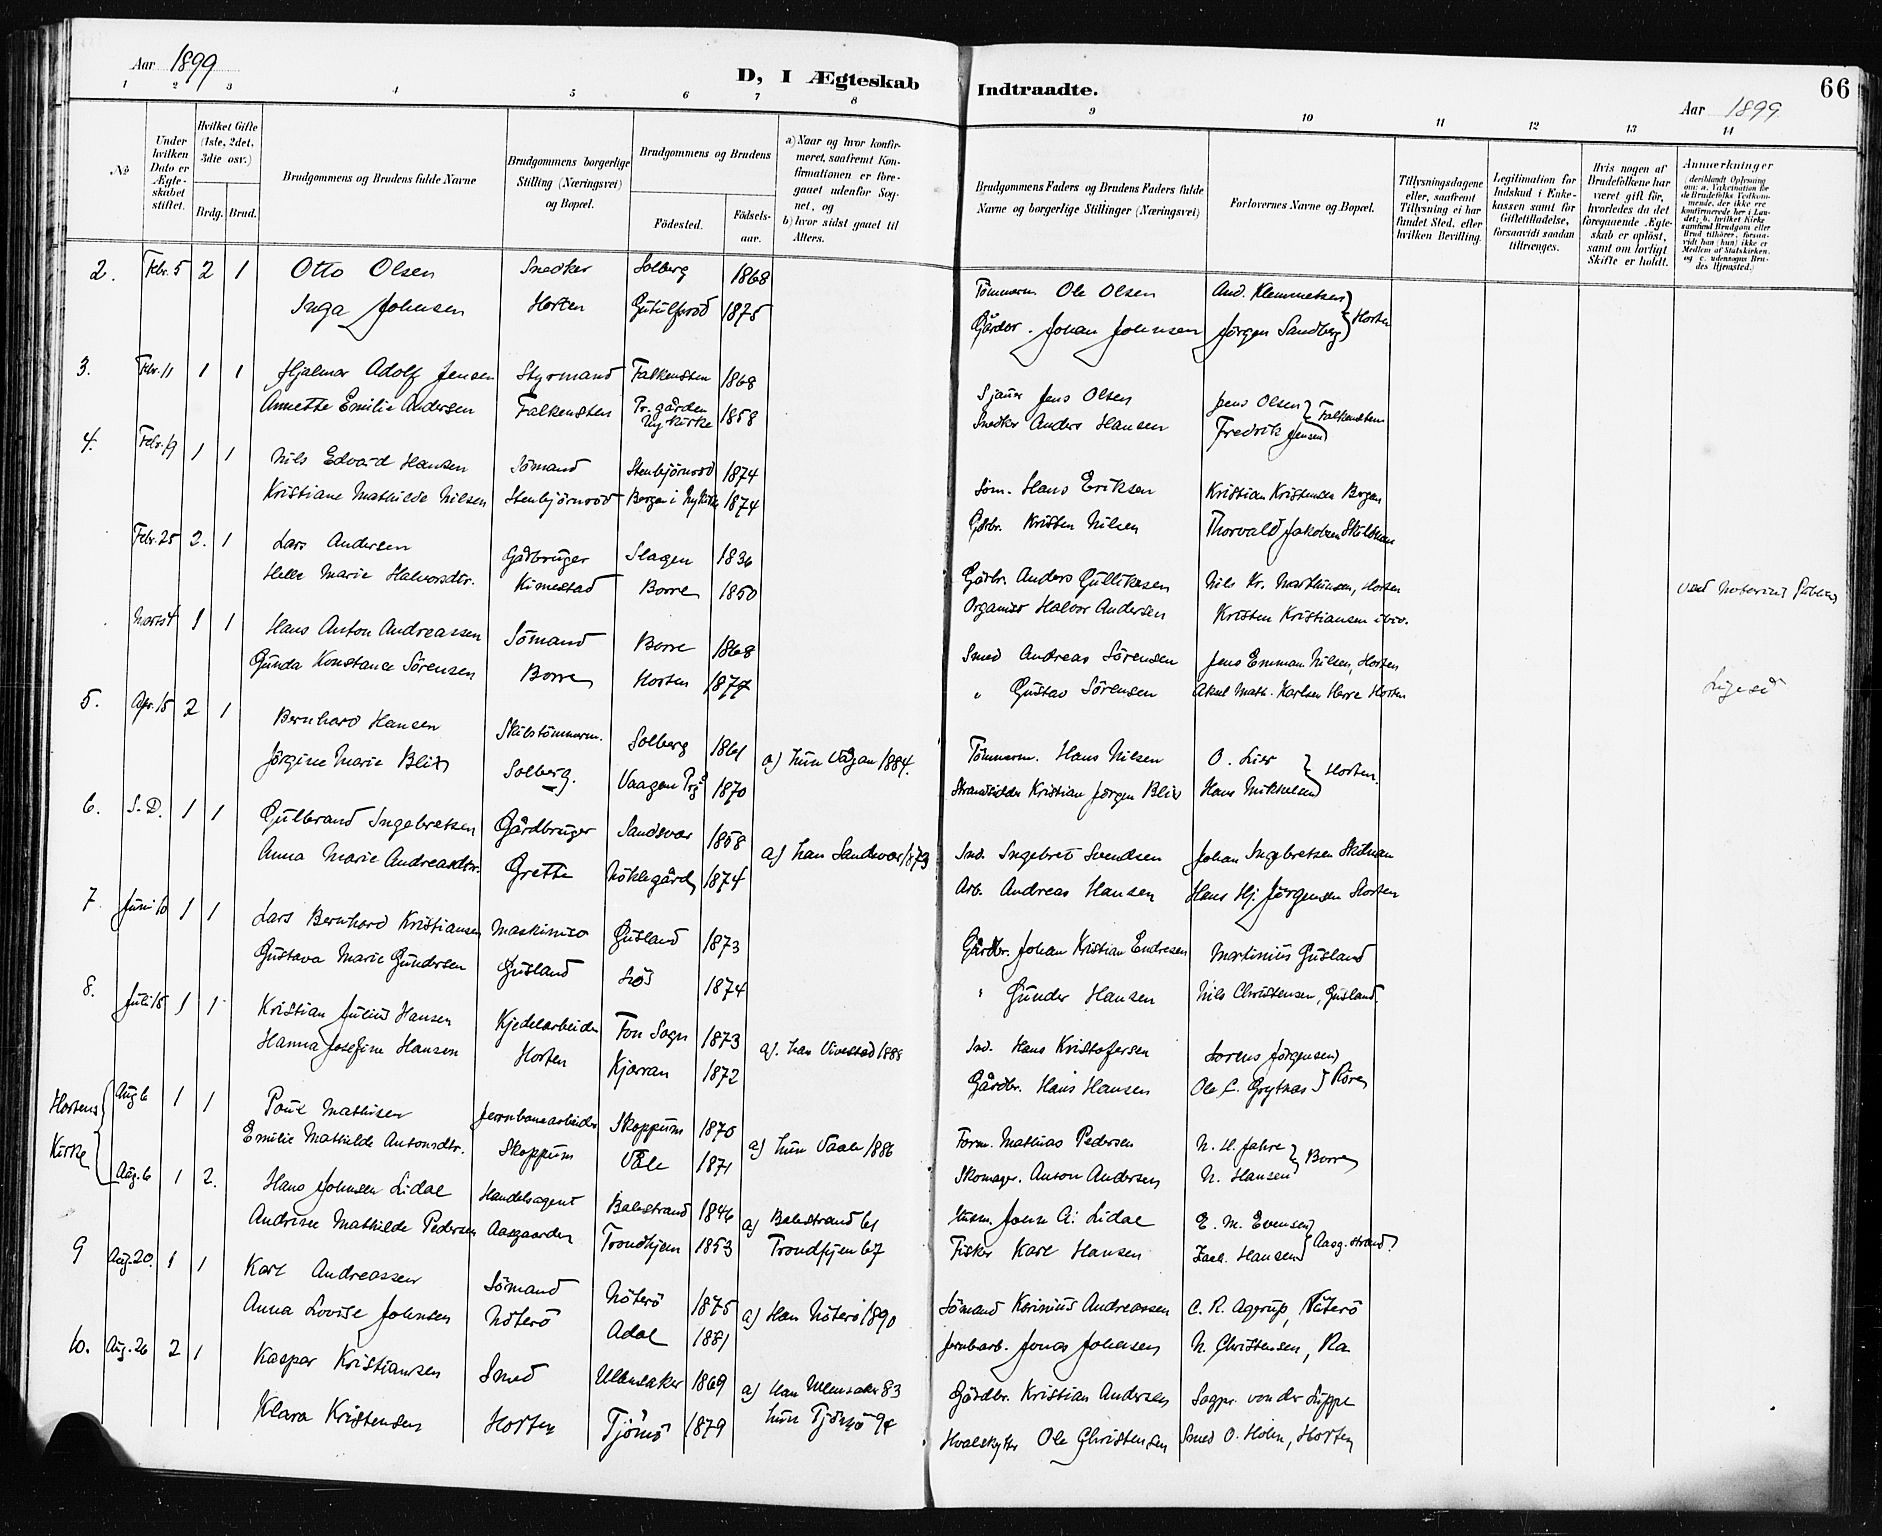 Aar 1899
D, I Ægteskab Indtraadte.
66
Aar 1899
1 2 3 4 5 6 7 8 9 10 11 12 13 14
No
Under hvilken Dato er Ægteskabet stiftet.
Hvilket Gifte (1ste, 2det, 3die osv.)
Brdg. Brud.
Brudgommens og Brudens fulde Navne
Brudgommens borgerlige Stilling (Næringsvei) og Bopæl.
Brudgommens og Brudens
Fødested. Fødselsaar.
a) Naar og hvor konfirmeret, saafremt Konfirmationen er foregaaet udenfor Sognet, og
b) hvor sidst gaaet til Alters.
Brudgommens Faders og Brudens Faders fulde Navne og borgerlige Stillinger (Næringsvei)
Forlovernes Navne og Bopæl.
Tillysningsdagene eller, saafremt Tillysning ei har fundet Sted, efter hvilken Bevilling.
Legitimation for Indskud i Enkekassen samt for Giftetilladelse, forsaavidt saadan tiltrænges.
Hvis nogen af Brudefolkene har været gift før, hvorledes da det foregaaende Ægteskab er opløst, samt om lovligt Skifte er holdt.
Anmærkninger
2. Febr. 5 2 1 Otto Olsen Snedker Solberg 1868 Tømmerm. Ole Olsen And. Klemmetsen
Inga Johnsen Horten 1875 Gårdbr. Johan Johnsen Jørgen Sandberg Horten
3. Febr. 11 1 1 Hjalmar Adolf Jensen Styrmand Falkensten 1868 Sjauer Jens Olsen Jens Olsen
Annette Emilie Andersen Falkensten Pr.gården Nykirke 1858 Snedker Anders Hansen Fredrik Jensen Falkensten
4. Febr. 19 1 1 Nils Edvard Hansen Sømand Stenbjørnrød 1874 Søm. Hans Eriksen Kristian Kristensen Borgen
Kristiane Mathilde Nilsen Stenbjørnrød Borgen i Nykirke 1874 Gårbr. Kristen Nilsen Thorvald Jakobsen
Febr. 25 2. 1 Lars Andersen Gårdbruger Slagen 1836 Gårbr. Anders Gulliksen Nils Kr. Marthinsen, Horten
Helle Marie Halvorsdtr. Borre 1850 Organist Halvor Andersen Kristen Kristiansen ibid.
Marts 4 1 1 Hans Anton Andreassen Sømand Borre 1868 Smed Andreas Sørensen Jens Emman Nilsen, Horten
Gunda Konstance Sørensen Borre Horten 1877 " Gustav Sørensen Aksel Math. Karlsen Horten
Ligeså
5. Apr. 15 2 1 Bernhard Hansen Skibstømmerm. Solberg 1861 Tømmerm. Hans Nilsen O. Lier
Jørgine Marie Blix Solberg. Vaagen 1870 a) hun Vågan 1884. Kristian Jørgen Blix Hans Mikkelsen Horten.
6. S. D. 1 1 Gulbrand Ingebretsen Gårdbruger Sandsvær 1858 a) han Sandsvær 1873 Ind. Ingebret Svendsen Johan Ingebretsen
Anna Marie Andreasdtr. Grette 1874 Arb. Andreas Hansen Hans Hj. Jørgensen Horten
7. Juni 10 1 1 Lars Bernhard Kristiansen Maskinist Gusland 1873 Gårdbr. Johan Kristian Endresen Martinius Gusland
Gustava Marie Gundersen Gusland 1874 " Gunder Hansen Nils Christensen, Gusland.
8. Juli 15 1 1 Kristian Julius Hansen Kjedelarbeider Fon Sogn 1873 a). han Vivestad 1888 Ind. Hans Kristofersen Sorens Jørgensen
Hanna Josefine Hansen Horten Kjærran 1872 Gårdbr. Hans Hansen Ole C. Grytnæs
Hortens Kirke
Aug 6 1 1 Poul Mathisen Jernbanearbeider Skoppum 1870 Form. Mathias Pedersen N. H. Jahre
Emilie Mathilde Antonsdtr. Skoppum Våle 1871 a) hun Vaale 1886 Skomager. Anton Andersen N. Hansen Borre
Aug. 6 1 2. Hans Johnsen Lidal Handelsagent Balestrand 1846 a) Balestrand 61 Husm. John A. Lidal E. M. Evensen
Andrine Mathilde Pedersen Aasgaarden Trondhjem 1853 Trondhjem 67 Fisker Karl Hansen Hansen Aasg.strand
9 Aug. 20. 1 1 Karl Andreassen Sømand Nøterø 1875 a) Han Nøterø 1890 Sømand Andreassen C. R. Agerup, Nøterø
Anna Lovise Johnsen Nøterø Adal 1881 Jernbarb. Jonas Johnsen N. Christensen, Ra
10. Aug. 26 2 1 Kaspar Kristiansen Smed Ullensaker 1869 a) han Ullensaker 83 Gårdbr. Kristian Andersen Sagpr. von der Lippe
Klara Kristensen Horten Tjømø 1879 hun Tjømø 94 Hvalskytter Ole Christensen Smed O. Holm, Horten